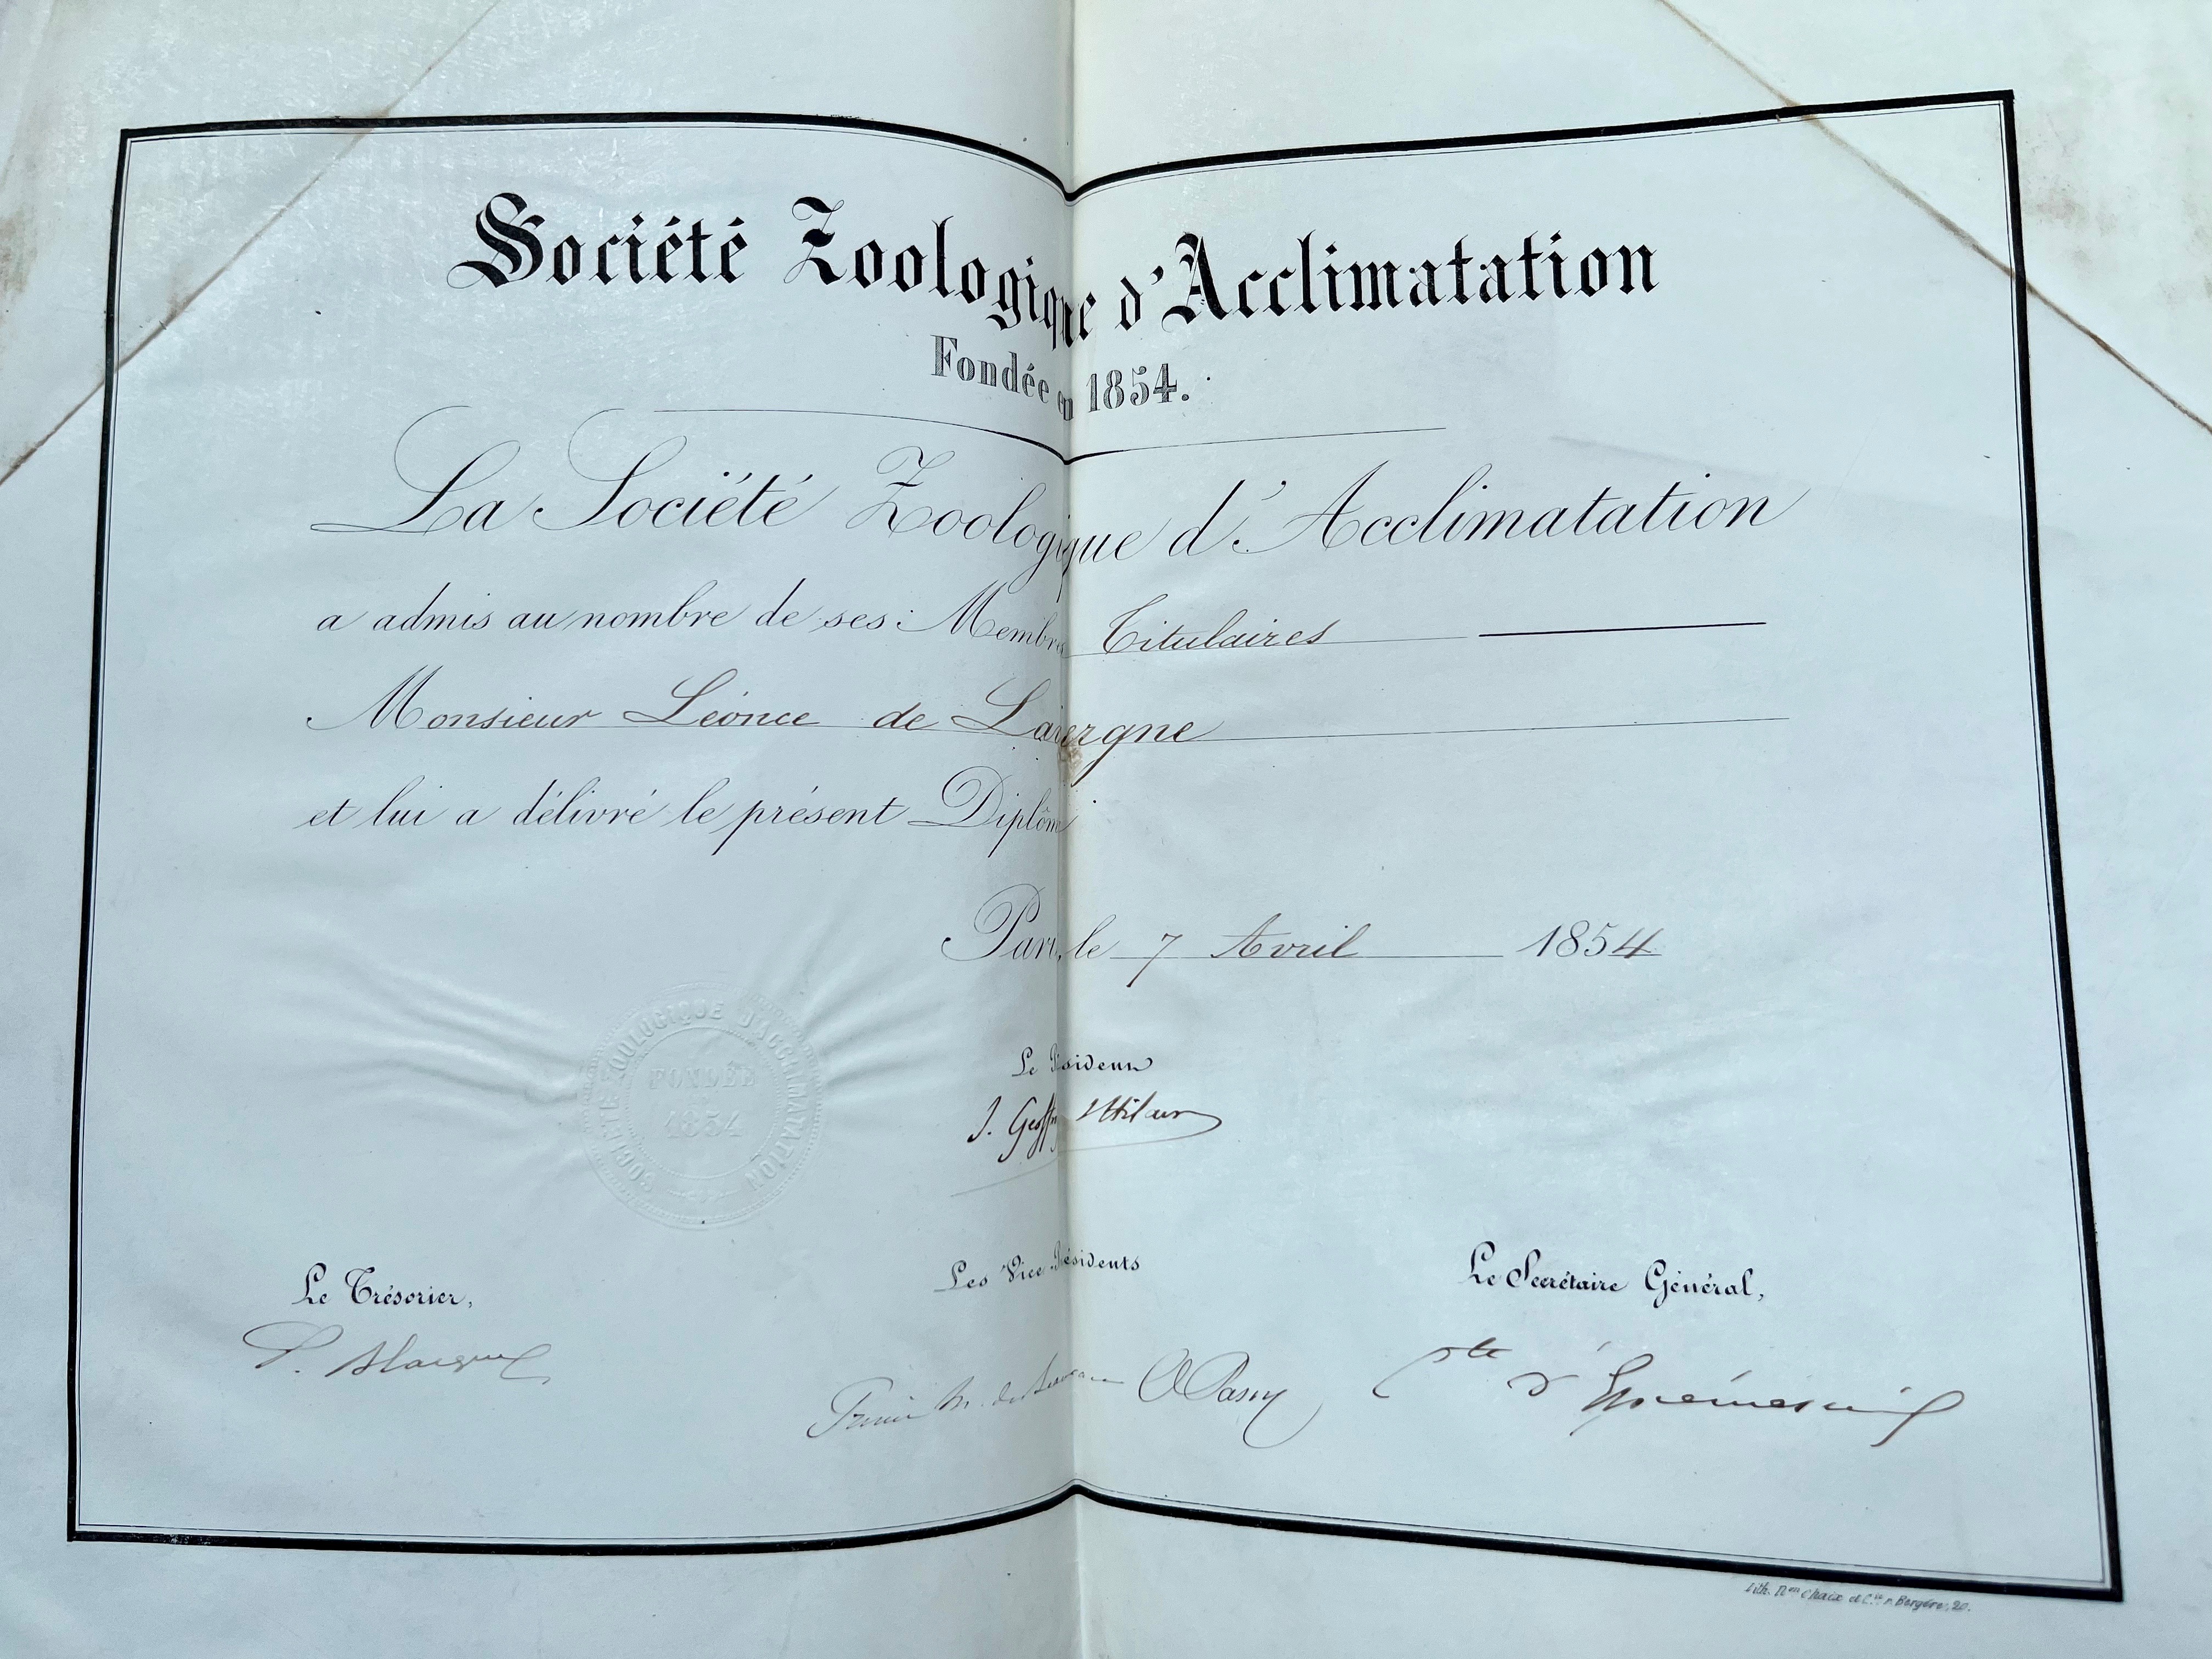 Société Zoologique d'Acclimatation
Fondée en 1854.
La Société Zoologique d'Acclimatation
a admis au nombre de ses: Membres Titulaires
Monsieur Léonce de Lavergne
et lui a délivré le présent Diplôme
Paris, le 7 Avril 1854
SOCIÉTÉ ZOOLOGIQUE D'ACCLIMATATION
FONDÉE
1854
Le Président
I. Geoffroy St Hilaire
Les Vice Présidents
Le Trésorier,
Le Secrétaire Général,
Cte d'Eprémesnil
Lith. Non Chaix et Cie r. Bergère, 20.